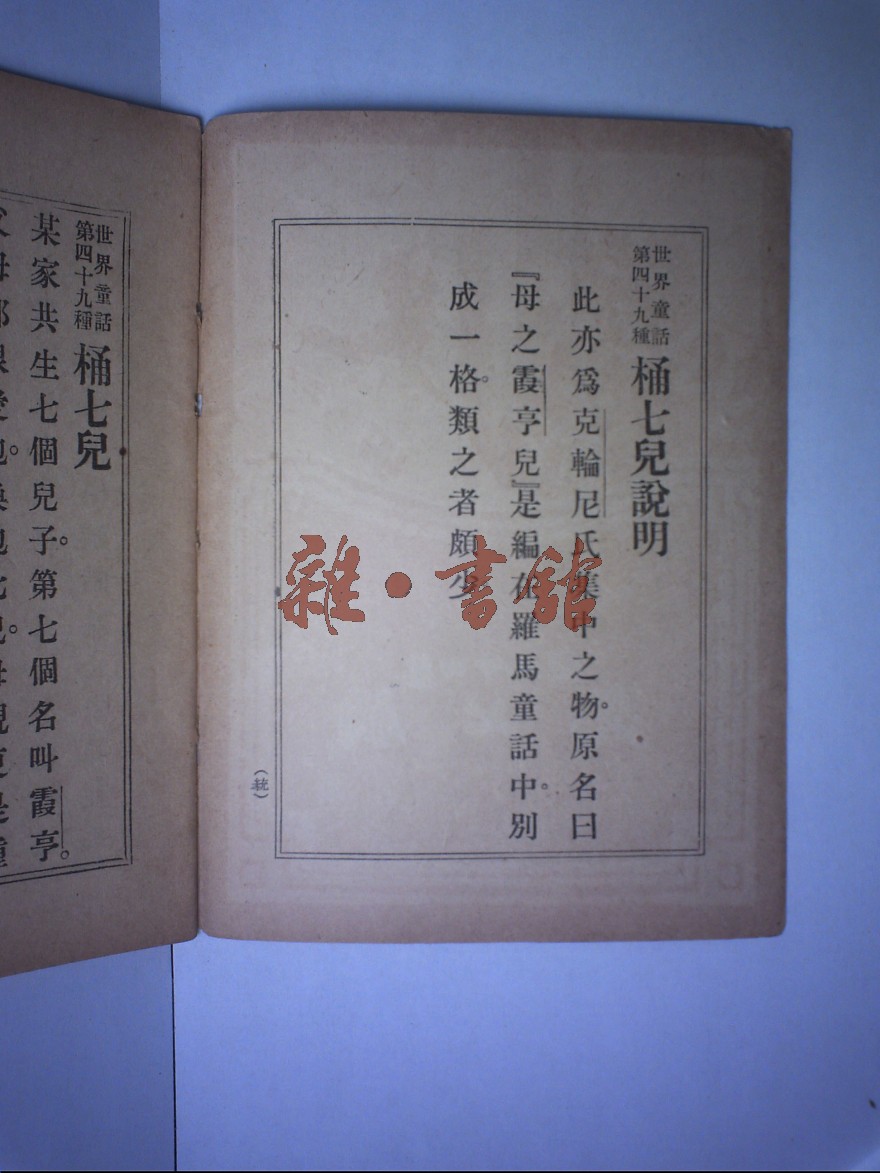 世界童話
第四十九種
桶七兒說明
此亦爲克輪尼氏集中之物。原名曰
『母之霞亨兒』是編在羅馬童話中。別
成一格。類之者頗少
雜·書舘
世界童話
第四十九種
桶七兒
某家共生七個兒子。第七個名叫霞亨。